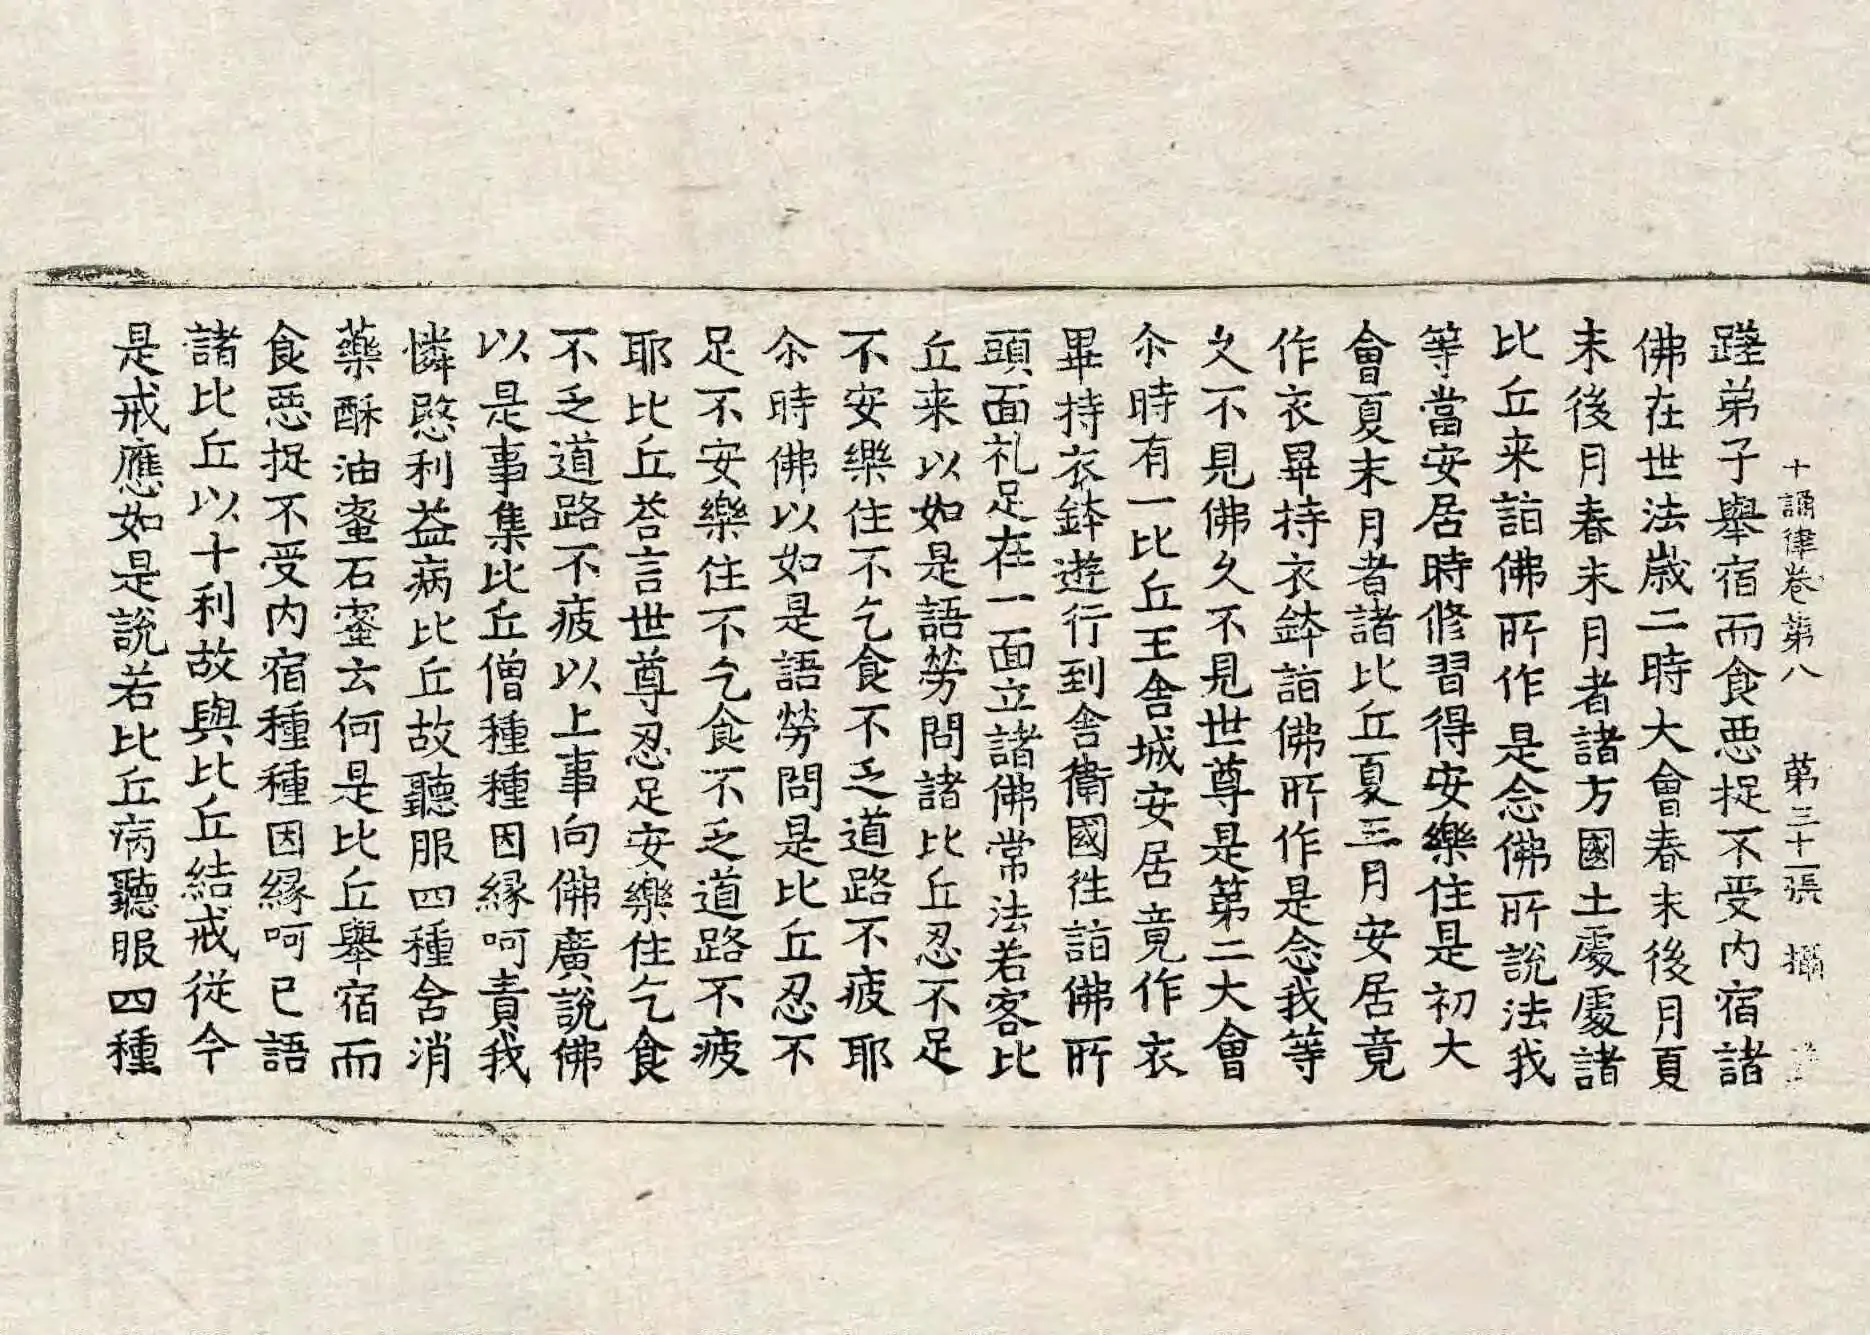 十誦律卷第八　第三十一張　攝
蹉弟子舉宿而食惡捉不受內宿諸
佛在世法歲二時大會春末後月夏
末後月春末月者諸方國土處處諸
比丘来詣佛所作是念佛所說法我
等當安居時修習得安樂住是初大
會夏末月者諸比丘夏三月安居竟
作衣畢持衣鉢詣佛所作是念我等
久不見佛久不見世尊是第二大會
尒時有一比丘王舍城安居竟作衣
畢持衣鉢遊行到舍衛國往詣佛所
頭面礼足在一面立諸佛常法若客比
丘来以如是語勞問諸比丘忍不足
不安樂住不乞食不乏道路不疲耶
尒時佛以如是語勞問是比丘忍不
足不安樂住不乞食不乏道路不疲
耶比丘荅言世尊忍足安樂住乞食
不乏道路不疲以上事向佛廣說佛
以是事集比丘僧種種因緣呵責我
憐愍利益病比丘故聽服四種含消
藥酥油蜜石蜜云何是比丘舉宿而
食惡捉不受內宿種種因緣呵已語
諸比丘以十利故與比丘結戒従今
是戒應如是說若比丘病聽服四種